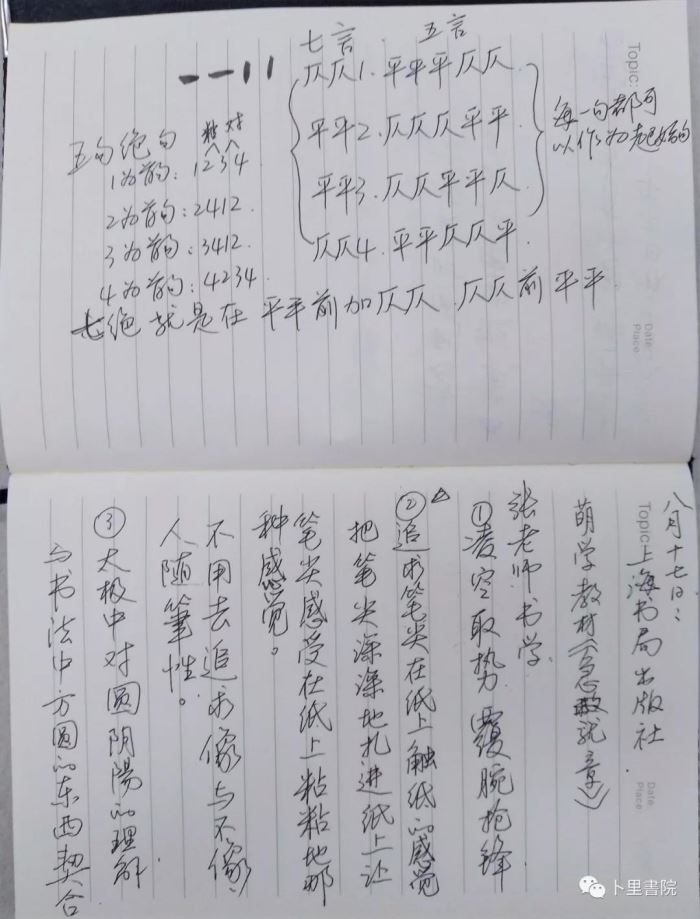 七言. 五言
仄仄1. 平平平仄仄
平平2. 仄仄仄平平
平平3. 仄仄平平仄
仄仄4. 平平仄仄平.
每一句都可
以作为起始句
五句绝句
粘 对
1为首句: 1234.
2为首句: 2412.
3为首句: 3412.
4为首句: 4234.
七绝就是在平平前加仄仄 仄仄前平平.
Topic:
Date:
Place
八月十七日:
Topic:
上海书局出版社
萌学教材《急就章》
张老师书学
①凌空取势 覆腕抢锋
②追求笔尖在纸上触纸的感觉
把笔尖深深地扎进纸上让
笔尖感受在纸上粘粘地那
种感觉。
不用去追求像与不像,
人随筆性。
③太极中对圆阴陽的理解
与书法中方圆的东西契合
Date:
Place
卜里書院